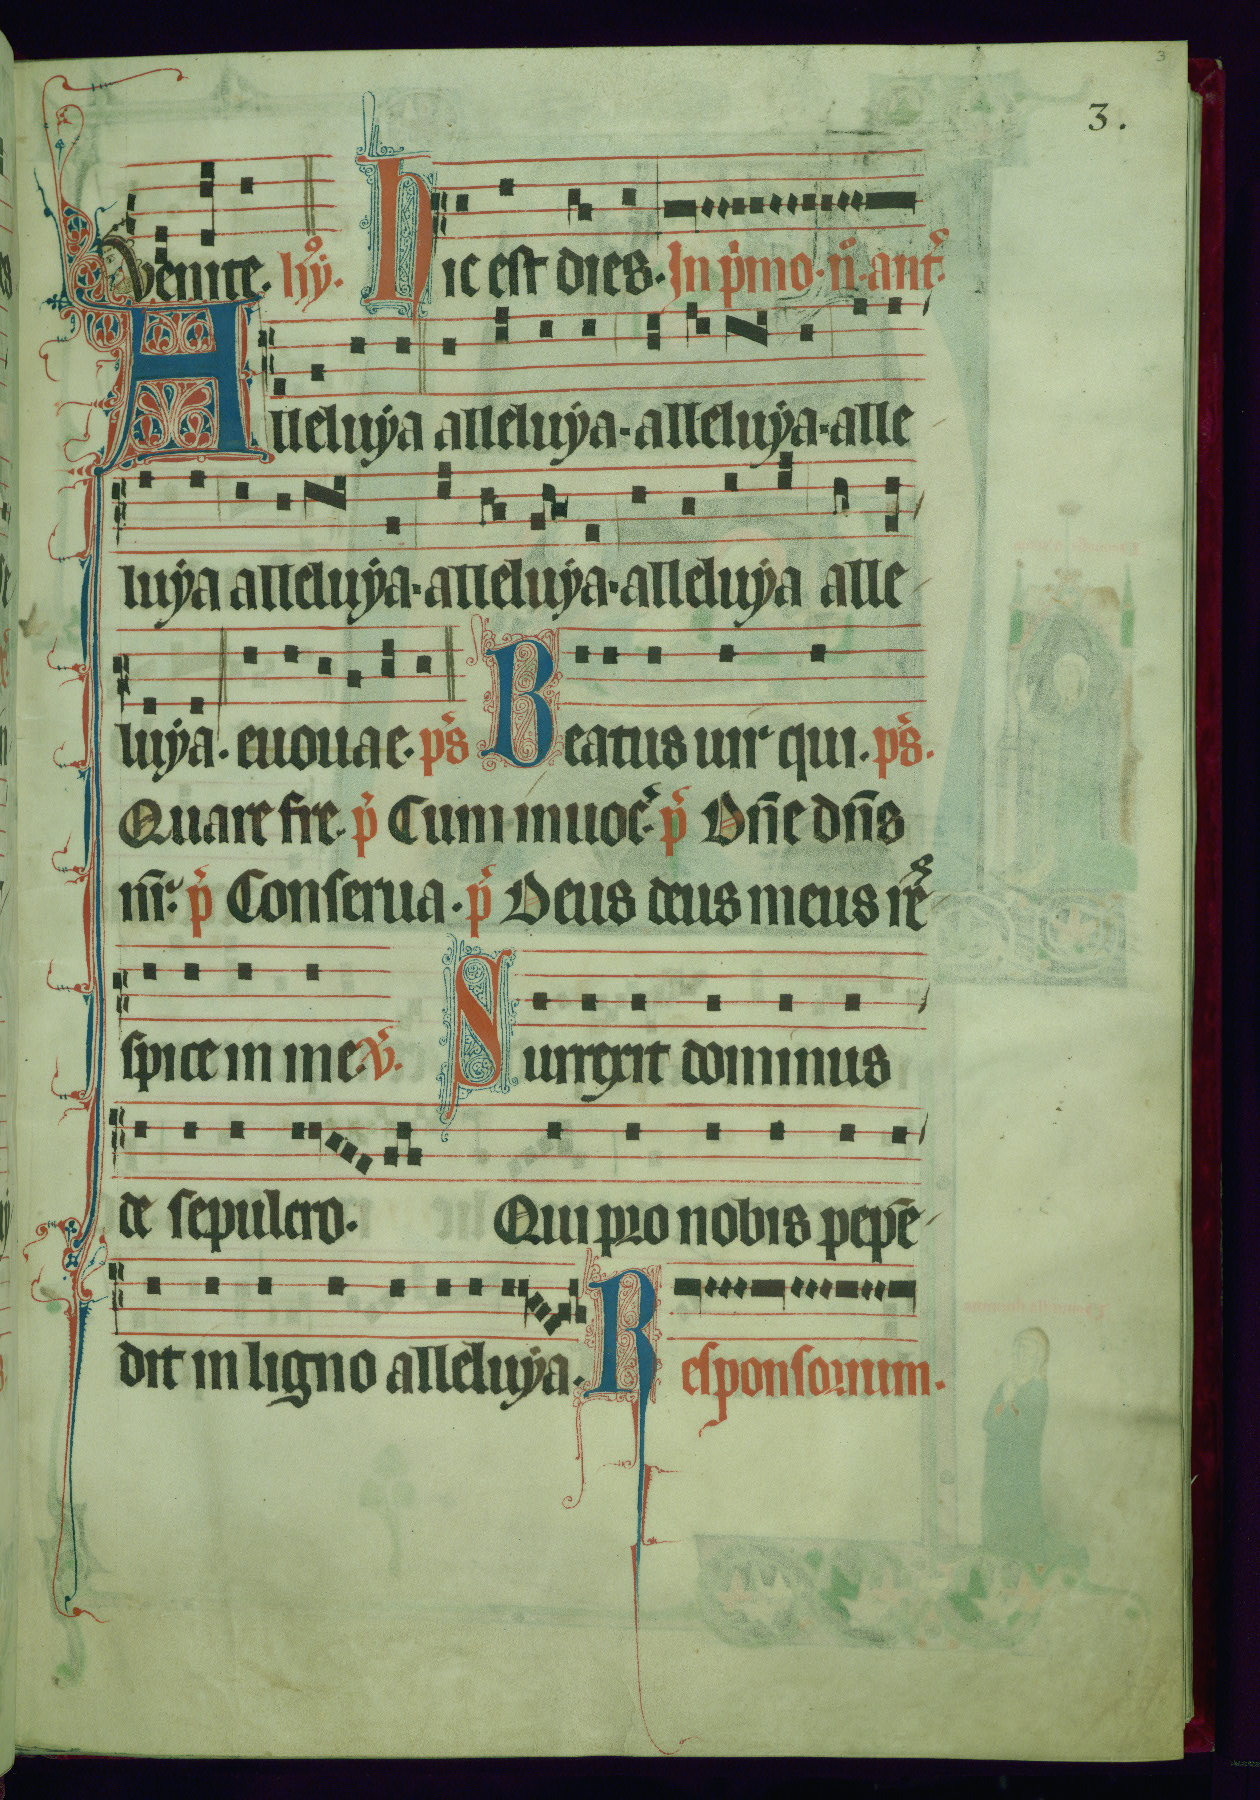 3.
Venite. hỹ. Hic est dies. In pͥmo. n̊. ant̾.
Alleluẏa alleluẏa. alleluẏa. alle
luẏa alleluẏa. alleluẏa. alleluẏa alle
luẏa. euouae. ps̾ Beatus uir qui. ps̾.
Quare fre. p̾ Cum inuoc̾. p̾ Dn̄e dn̄s
nr̄. p̾ Conserua. p̾ Deus deus meus re̾
spice in me. v̾. Surrexit dominus
de sepulcro. Qui pro nobis pepē
dit in ligno alleluẏa. Responsorium.